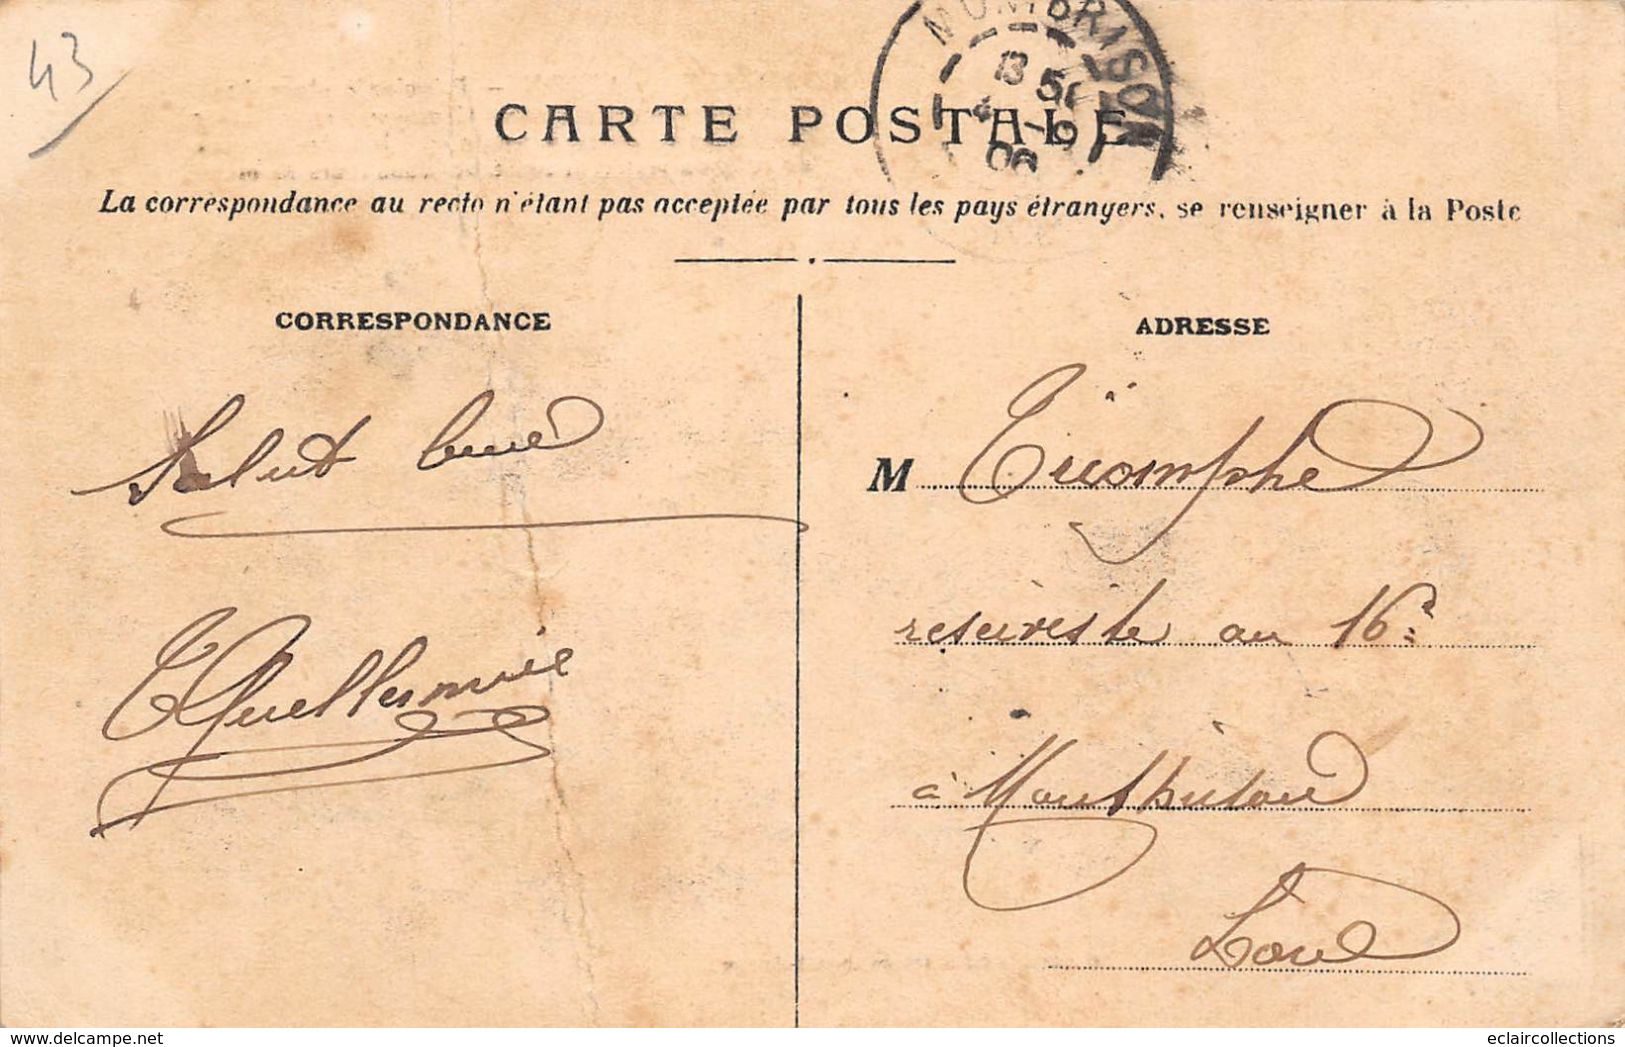 43
MONTBRISON
13 50
4 -9
06
CARTE POSTALE
La correspondance au recto n'étant pas acceptée par tous les pays étrangers, se renseigner à la Poste
CORRESPONDANCE
ADRESSE
Salut
M Triomphe
reserviste au 16e
à Montbrison
Loire
delcampe.net
eclaircollections